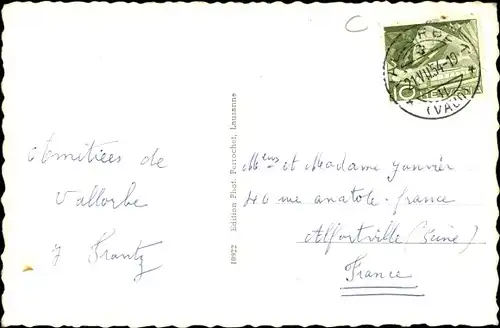 C
10
VALLORBE 1
21.VII.54-19
(VAUD)
Amitiées de
Vallorbe
J Frantz
10922 Edition Phot. Perrochet, Lausanne
Mens et Madame Janvier
40 rue anatole-france
Alfortville (Seine)
France